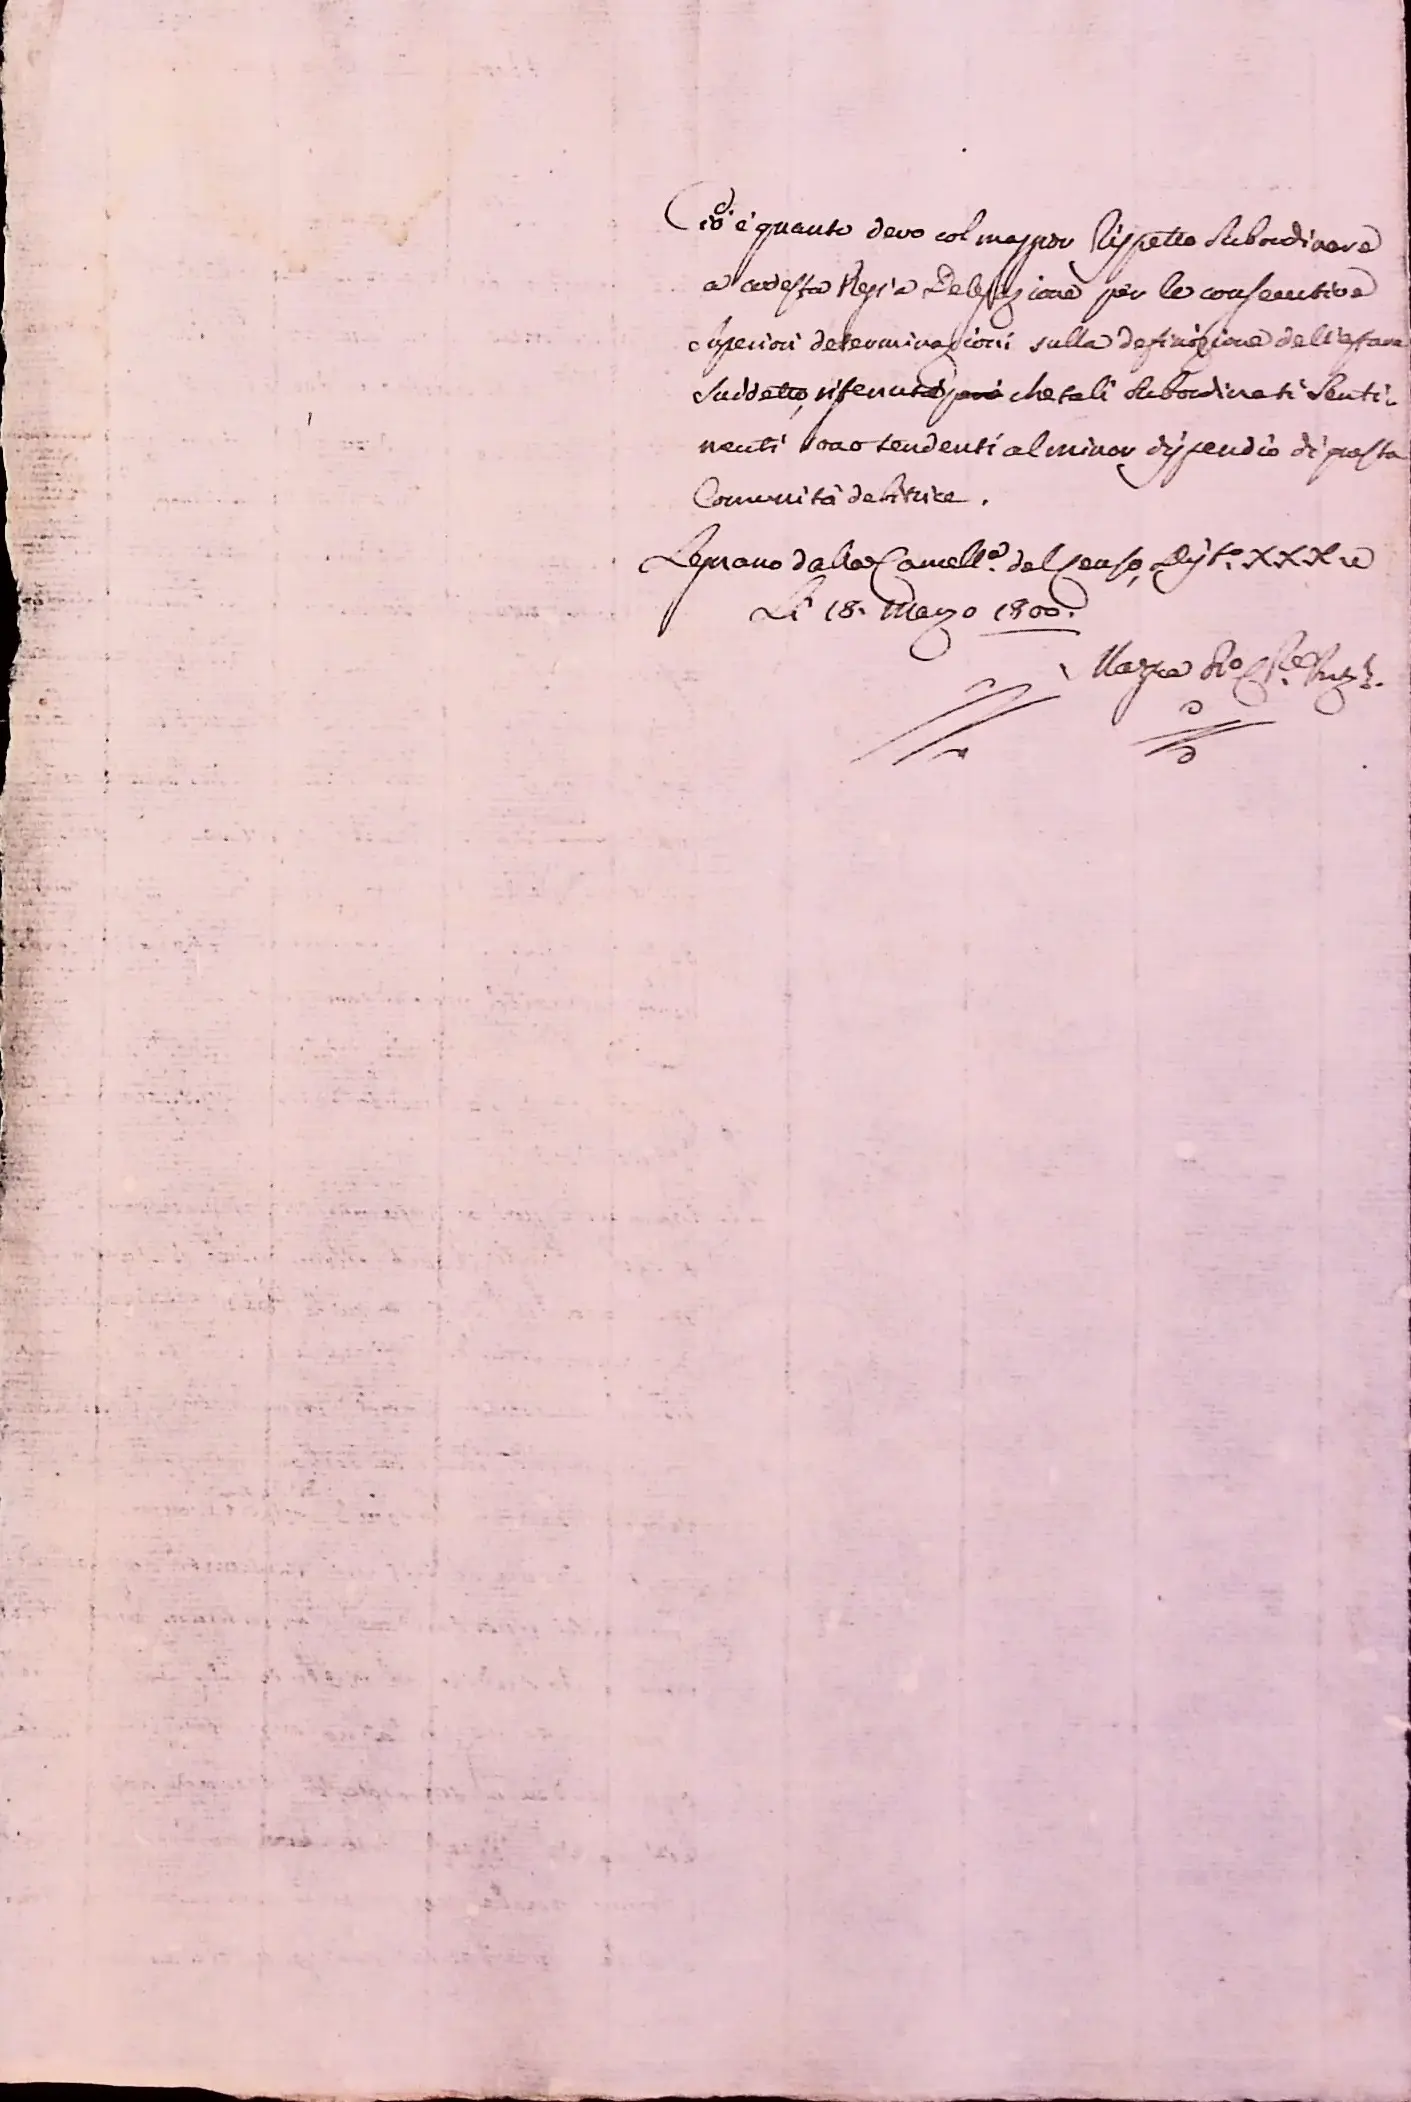 Ciò è quanto devo col maggior Rispetto Subordinare
a codesta Regia Delegazione per le consecutive
Superiori determinazioni sulla definizione dell'affare
Suddetto, ritenuto però che tali Subordinati Senti-
menti sono tendenti al minor dispendio di questa
Comunità debitrice.
Legnano dalla Cancell.a del Censo, Dist.o XXX e
Li 18. Marzo 1800.